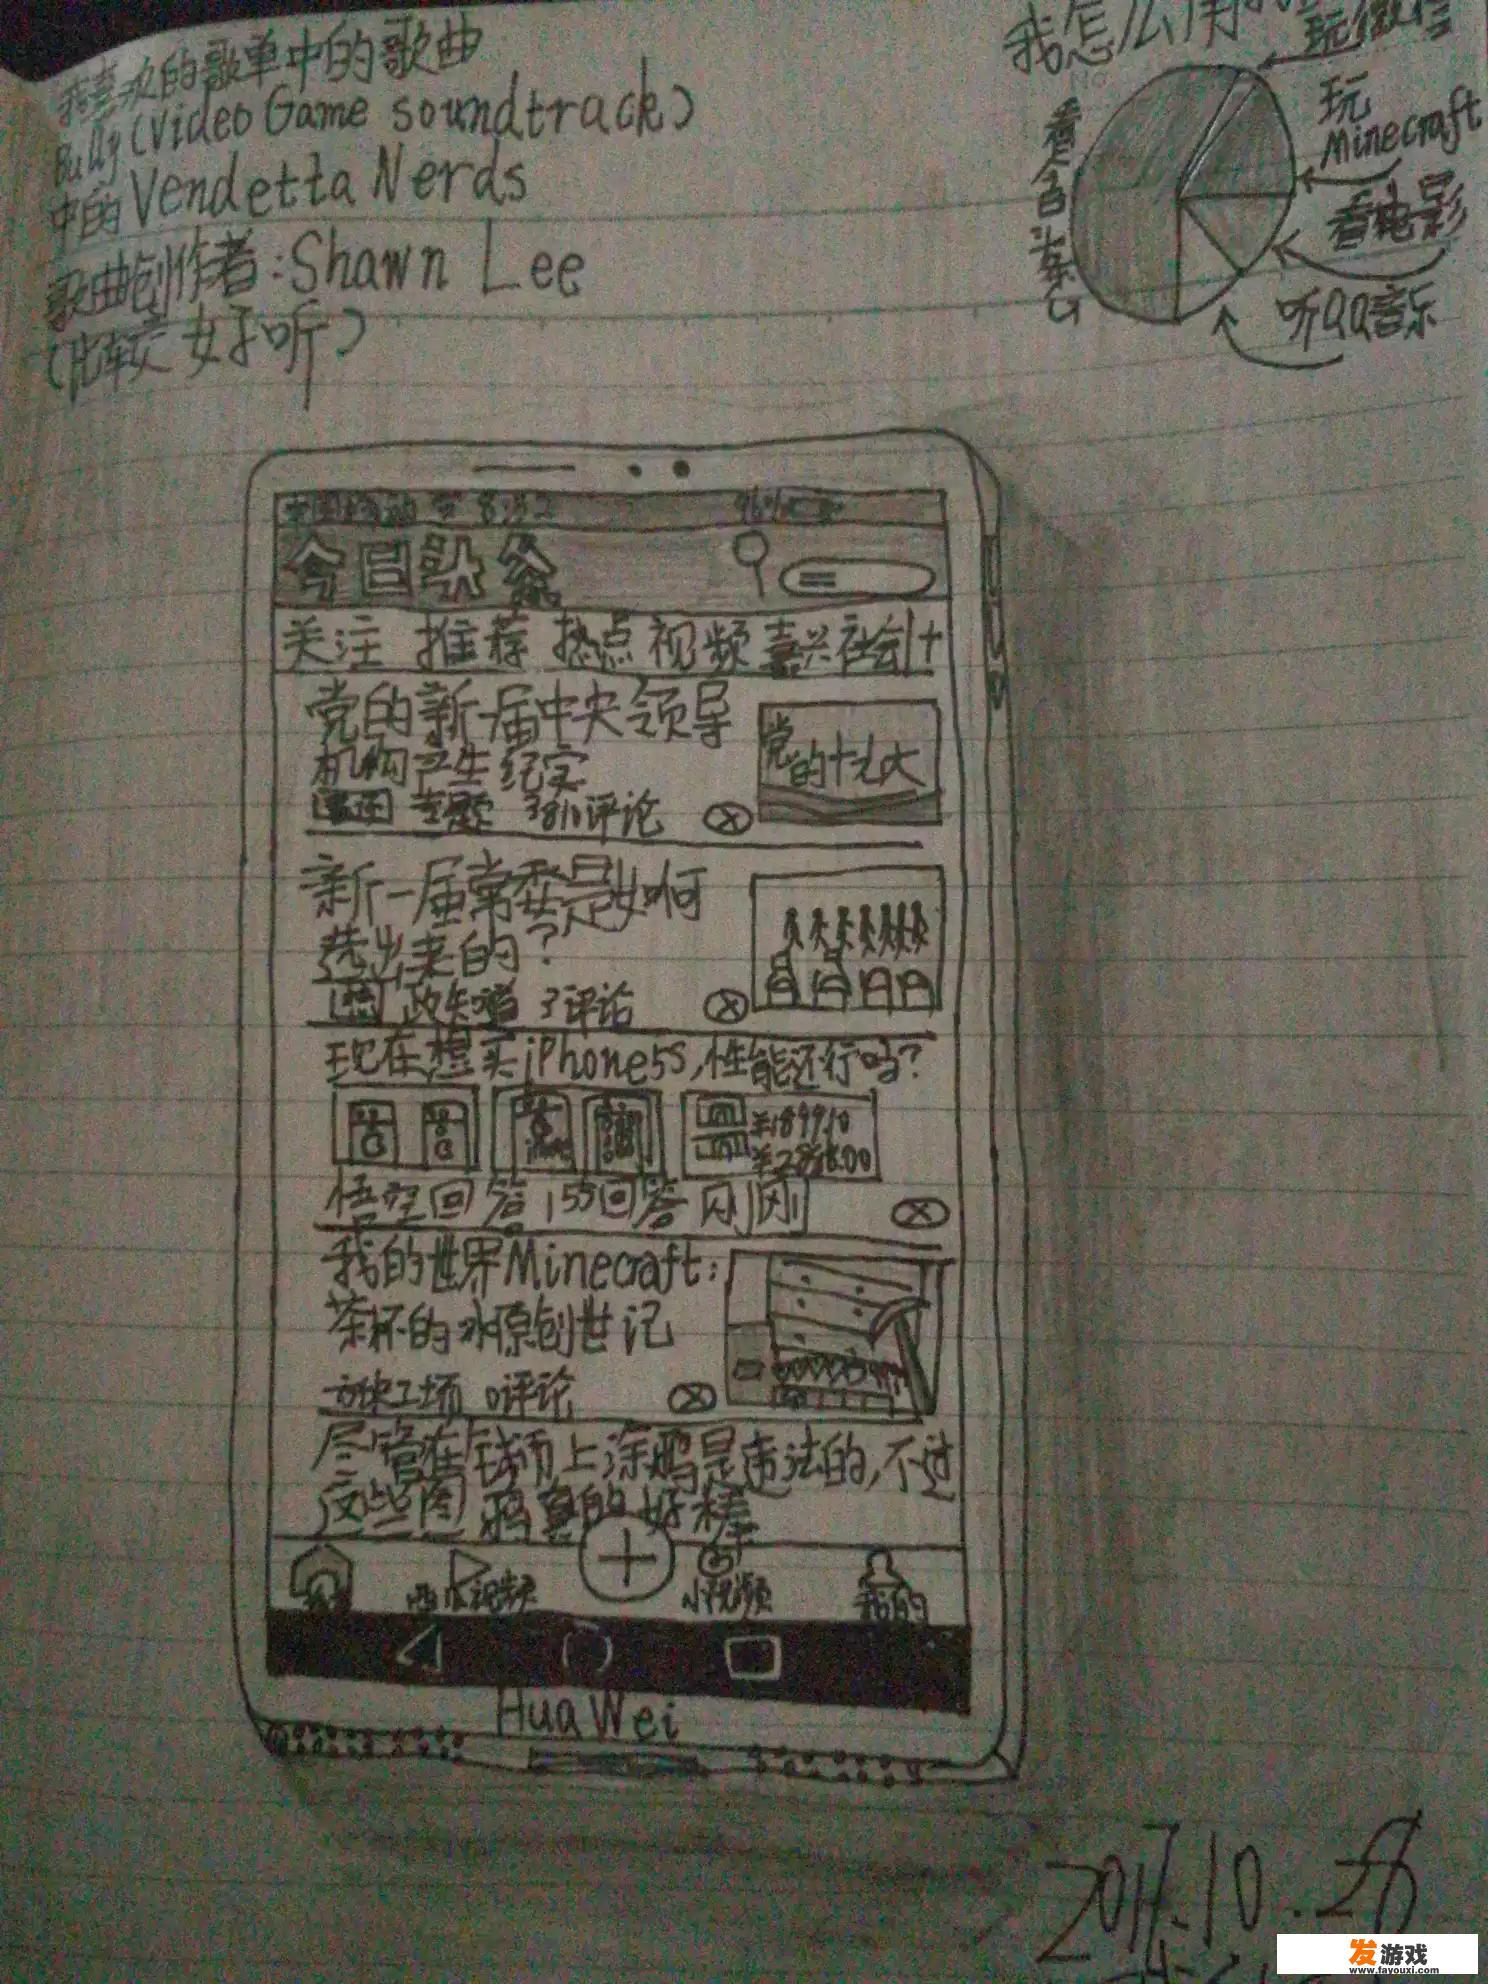 我喜欢的歌单中的歌曲
Bully(Video Game soundtrack)
中的Vendetta Nerds
歌曲创作者:Shawn Lee
(比较好听)
我怎么用
玩微信
玩
Minecraft
看电影
听QQ音乐
看今日头条
中国移动 8:52
96%
今日头条
关注 推荐 热点 视频 嘉兴 社会 +
党的新一届中央领导
机构产生纪实
专题 3810评论
党的十九大
新一届常委是如何
选出来的?
3评论
现在想买iPhone5s,性能还行吗?
¥1899.10
悟空回答 155回答 刚刚
我的世界Minecraft:
茶杯的水原创世记
方块工场 0评论
尽管在钱币上涂鸦是违法的,不过
这些图鸦真的好棒
西瓜视频
小视频
我的
HuaWei
2017.10.28
发游戏
www.fayouxi.com